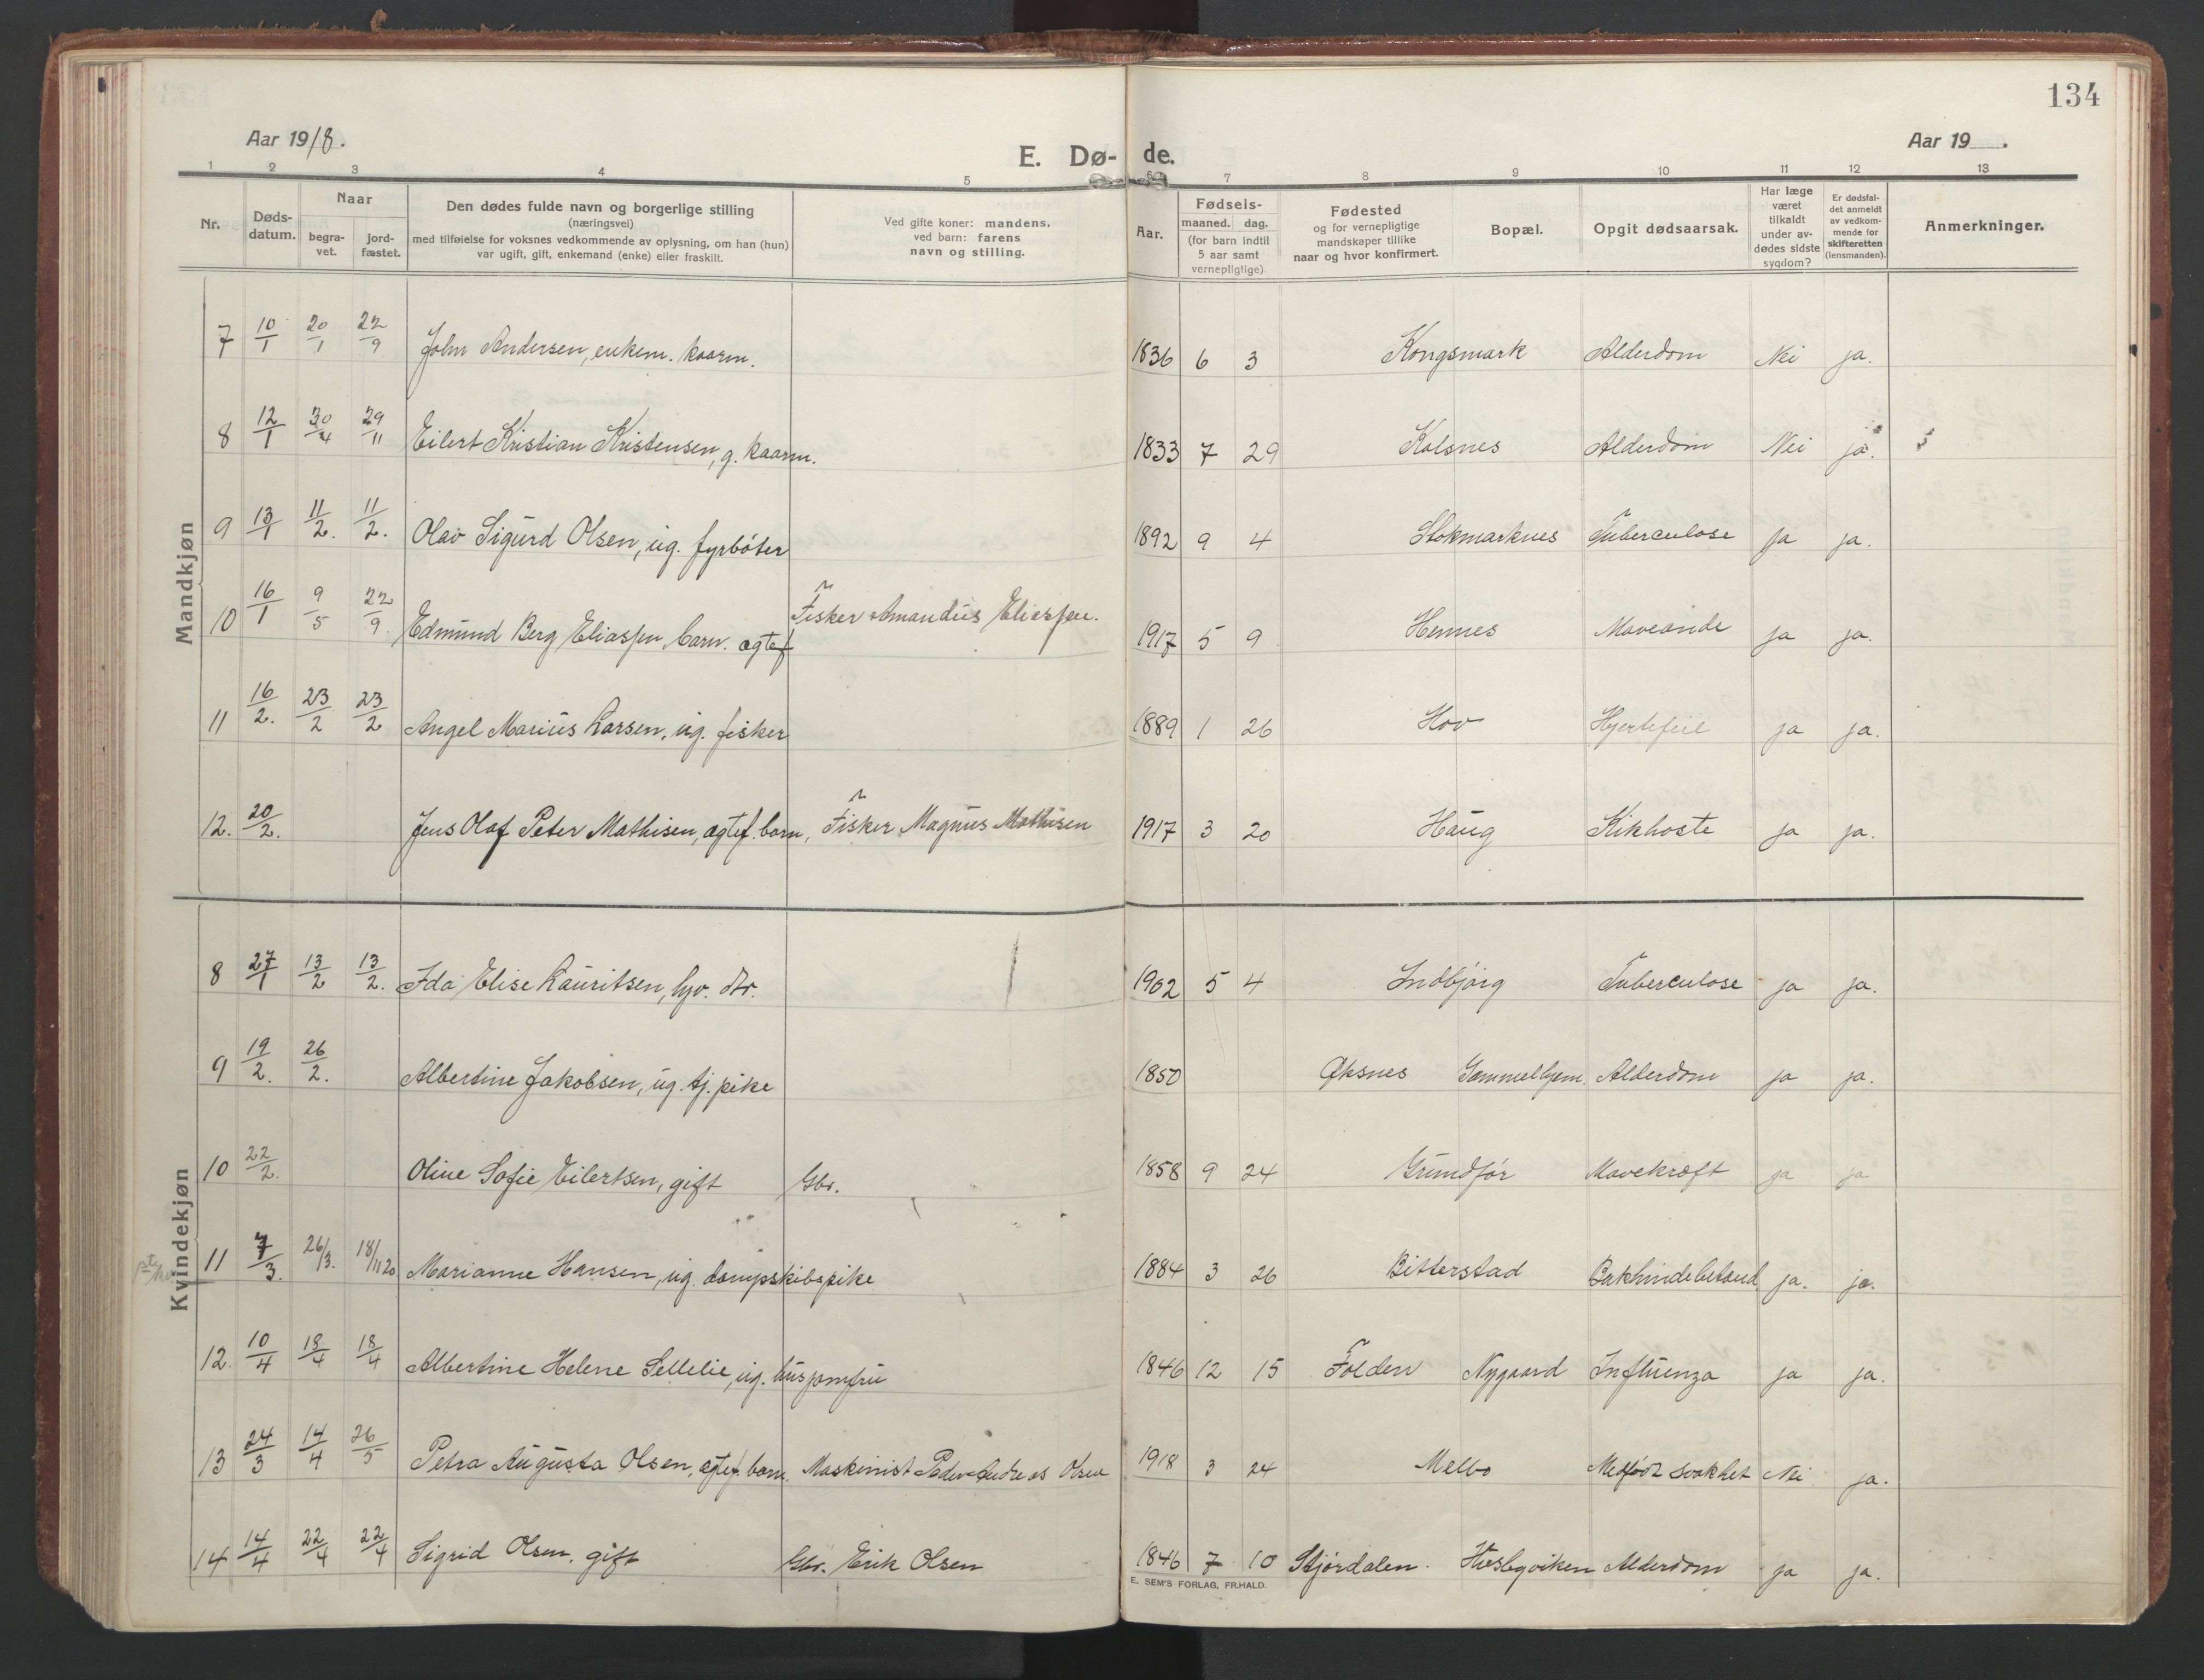 134
Aar 1918.
E. Dø- de.
Aar 19 .
1 2 3 4 5 6 7 8 9 10 11 12 13
Nr.
Døds-
datum.
Naar
begra-
vet.
jord-
fæstet.
Den dødes fulde navn og borgerlige stilling
(næringsvei)
med tilføielse for voksnes vedkommende av oplysning, om han (hun)
var ugift, gift, enkemand (enke) eller fraskilt.
Ved gifte koner: mandens,
ved barn: farens
navn og stilling.
Aar.
Fødsels-
maaned. dag.
(for barn indtil
5 aar samt
vernepligtige)
Fødested
og for vernepligtige
mandskaper tillike
naar og hvor konfirmert.
Bopæl.
Opgit dødsaarsak.
Har læge
været
tilkaldt
under av-
dødes sidste
sygdom?
Er dødsfal-
det anmeldt
av vedkom-
mende for
skifteretten
(lensmanden).
Anmerkninger.
Mandkjøn
7 10/1 20/1 22/9 John Andersen, enkem. kaarm. 1836 6 3 Kongsmark Alderdom Nei ja.
8 12/1 30/4 29/11 Eilert Kristian Kristensen, g. kaarm. 1833 7 29 Kalsnes Alderdom Nei ja.
9 13/1 11/2. 11/2. Olav Sigurd Olsen, ug. fyrbøter 1892 9 4 Stokmarknes Tuberculose ja ja.
10 16/1 9/5 22/9. Edmund Berg Eliassen, barn. ægtef Fisker Amandus Eliassen. 1917 5 9 Hennes Maveonde ja ja.
11 16/2. 23/2 23/2 Angel Marius Larsen, ug. fisker 1889 1 26 Hov Hjertefeil ja ja.
12. 20/2. Jens Olaf Peter Mathisen, ægtef. barn, Fisker Magnus Mathisen 1917 3 20 Haug Kikhoste ja ja.
Kvindekjøn
8 27/1 13/2 13/2. Ida Elise Lauritsen, hjv. dtr. 1902 5 4 Indbjørg Tuberculose ja ja.
9 19/2. 26/2. Albertine Jakobsen, ug. tj. pike 1850 Øksnes Gammelhjem. Alderdom ja ja.
10 22/2. Oline Sofie Eilertsen, gift Gbr. 1858 9 24 Grundfør Mavekræft ja ja
11 7/3. 26/3. 18/11 20 Marianne Hansen, ug. dampskibspike 1884 3 26 Bitterstad Bukhindebetænd. ja. ja.
12. 10/4 18/4 18/4 Albertine Helene Sellelie, ug. husjomfru 1846 12 15 Folden Nygaard Influenza ja ja.
13 24/3 14/4 26/5 Petra Augusta Olsen, ægtef. barn. Maskinist Peder Andreas Olsen 1918 3 24 Melbo Medfødt svakhet Nei ja.
14 14/4 22/4 22/4 Sigrid Olsen. gift Gbr. Erik Olsen 1846 7 10 Stjørdalen. Husbyviken Alderdom ja ja.
E. SEM'S FORLAG, FR.HALD.